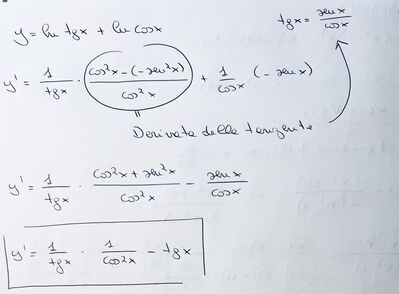 y = ln tgx + ln cosx
tgx = senx/cosx
y' = 1/tgx · (cos²x - (-sen²x))/cos²x + 1/cosx (-senx)
Derivata della tangente
y' = 1/tgx · (cos²x + sen²x)/cos²x - senx/cosx
y' = 1/tgx · 1/cos²x - tgx